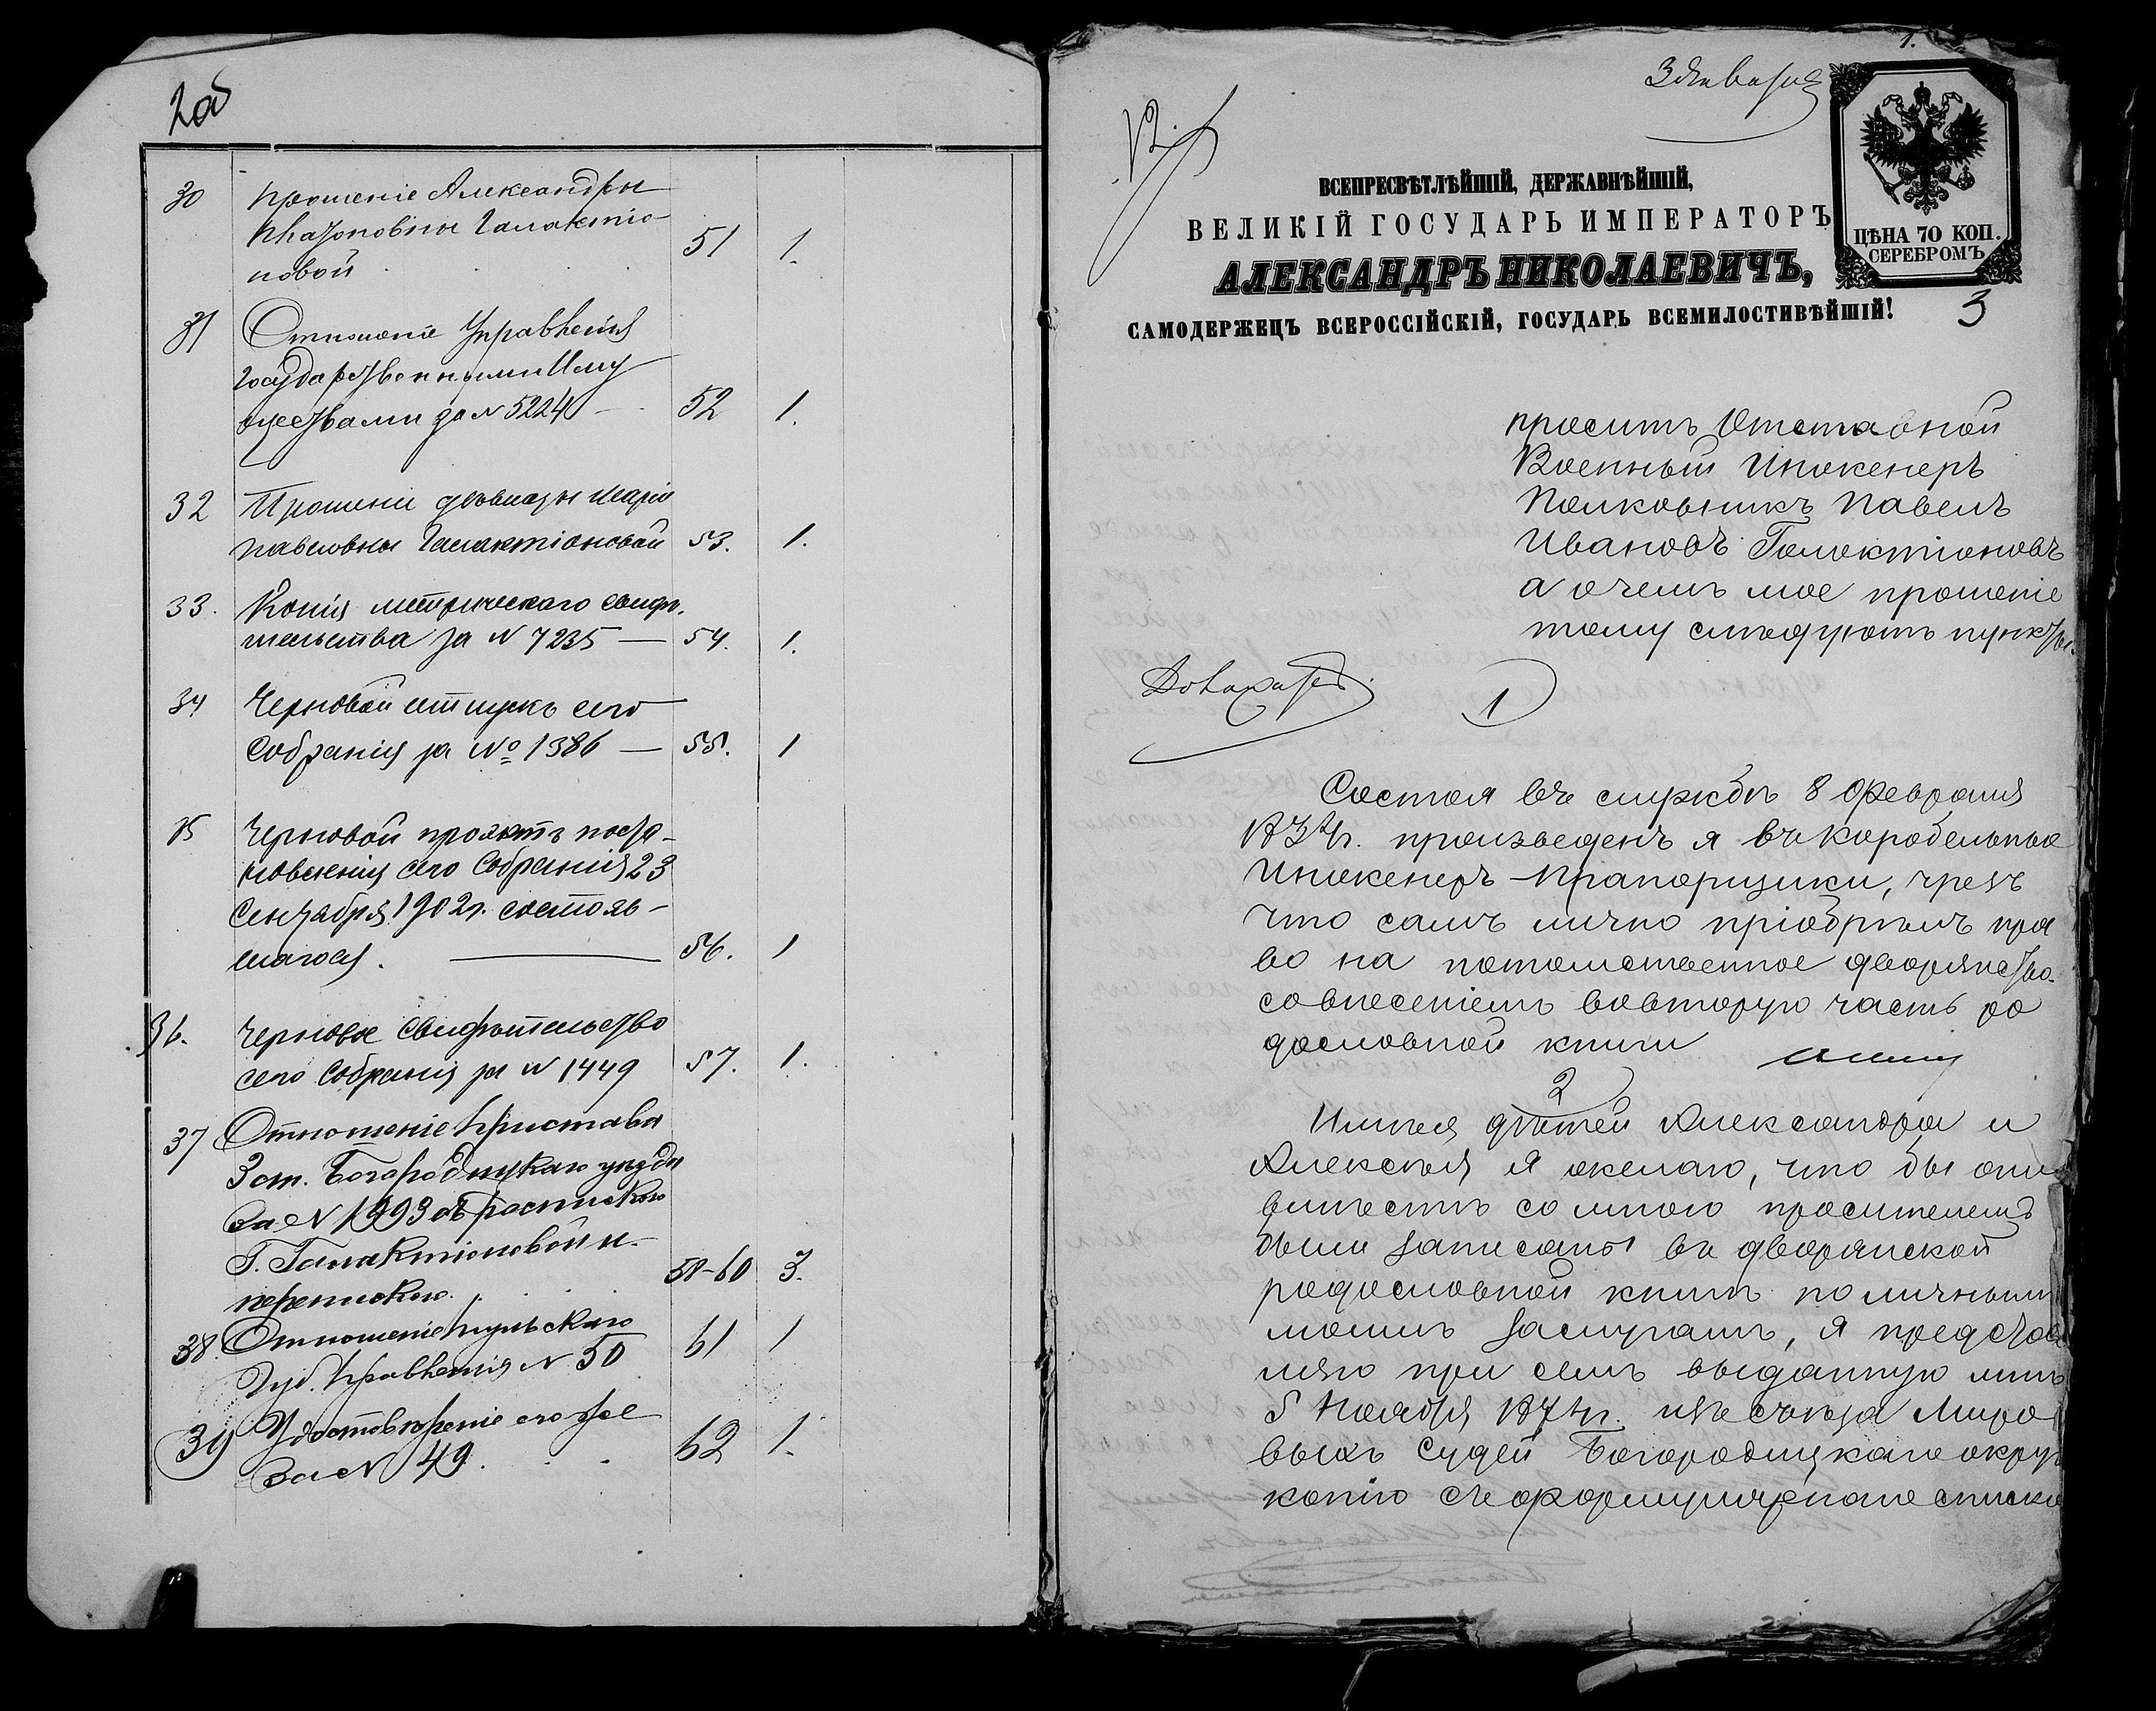 2об
30 Прошеніе Александры
Платоновны Галактіо-
новой 51 1.
31 Отношеніе Управленія
Государственными Иму
ществами за N 5224 52 1.
32 Прошеніе дѣвицы Маріи
Павловны Галактіоновой 53. 1.
33. Копія метрическаго свидѣ-
тельства за N 7235 — 54. 1.
34 Черновой отпускъ сего
Собранія за № 1386 — 55. 1
35 Черновой проэктъ поста-
новленія сего Собранія 23
Сентября 1902 г. состояв-
шагося. — 56. 1
36. Черновое свидѣтельство
сего Собранія за N 1449 57. 1.
37 Отношеніе Пристава
3 ст. Богородицкаго уѣзда
за N 1993 съ роспискою
Г. Галактіоновой и
перепискою. 58-60 3.
38. Отношеніе Тульскаго
Губ. Правленія N 50 61 1
39 Удостовѣреніе его же
за N 49. 62 1.
1.
3 Января
ЦѢНА 70 КОП.
СЕРЕБРОМЪ
3
ВСЕПРЕСВѢТЛѢЙШІЙ, ДЕРЖАВНѢЙШІЙ,
ВЕЛИКІЙ ГОСУДАРЬ ИМПЕРАТОРЪ
АЛЕКСАНДРЪ НИКОЛАЕВИЧЪ,
САМОДЕРЖЕЦЪ ВСЕРОССІЙСКІЙ, ГОСУДАРЬ ВСЕМИЛОСТИВѢЙШІЙ!
проситъ Отставной
Военный Инженеръ
Полковникъ Павелъ
Ивановъ Галактіоновъ
а о чемъ мое прошеніе
тому слѣдуютъ пункты.
Доложить.
1
Состоя въ службѣ 8 Февраля
произведенъ я въ корабельные
Инженеръ-Прапорщики, чрезъ
что самъ лично пріобрѣлъ пра
во на потомственное дворянство
со внесеніемъ во вторую часть ро
дословной книги
2
Имѣя дѣтей Александра и
Алексѣя я желаю, что бы они
вмѣстѣ со мною просителемъ
были записаны въ дворянской
родословной книгѣ по личнымъ
моимъ заслугамъ, я представ
ляю при семъ выданную мнѣ
5 Ноября 187 г. изъ съѣзда Миро
выхъ Судей Богородицкаго округа
копію съ формулярнаго списка